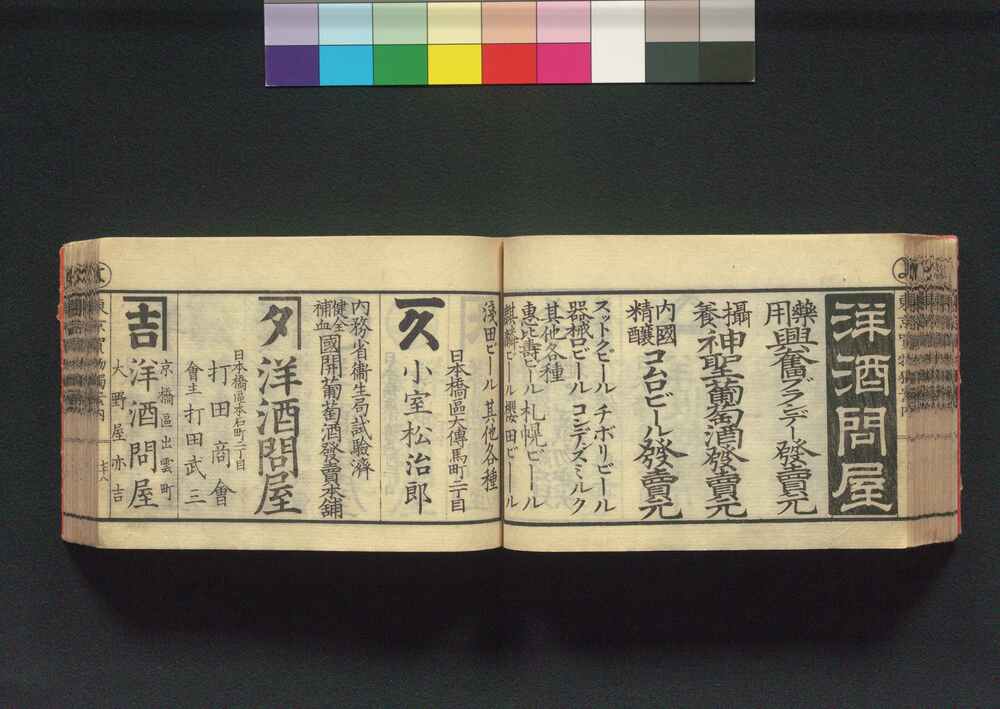 洋酒問屋
藥用興奮ブランデー發賣元
攝養神聖葡萄酒發賣元
內國精釀コムロビール發賣元
スットクビール チボリビール
器械口ビール コンデスミルク
其他各種
惠比壽ビール 札幌ビール
麒麟ビール 櫻田ビール
淺田ビール 其他各種
日本橋區大傳馬町二丁目
久 小室松治郎
內務省衞生局試驗濟
健全補血國開葡萄酒發賣本舖
タ 洋酒問屋
日本橋區本石町二丁目
打田商會
會主 打田武三
吉 洋酒問屋
京橋區出雲町
大野屋亦吉